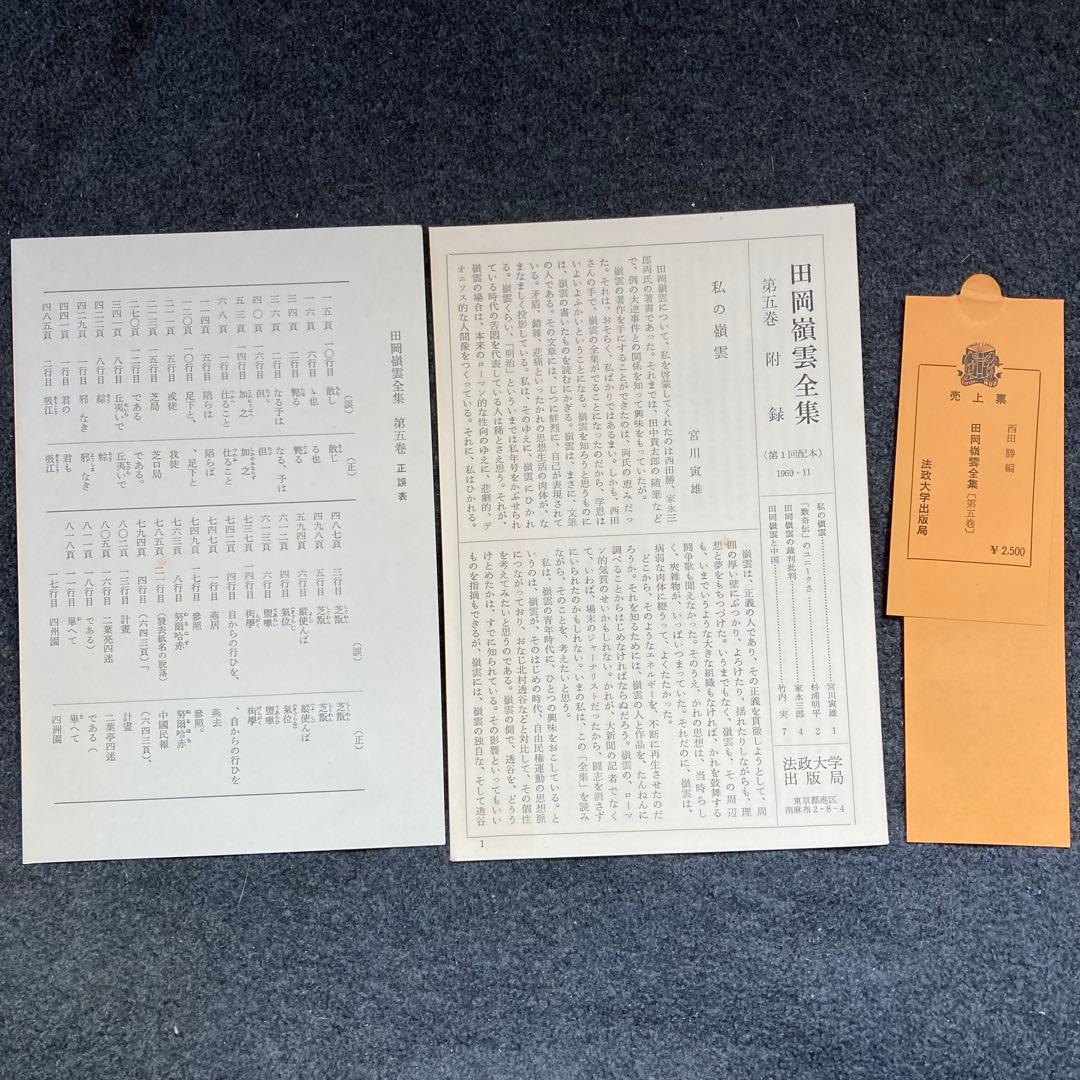 田岡嶺雲全集 第五巻 正誤表
(誤) (正)
一五頁 一〇行目 散し 散じ
一六頁 六行目 ゝ也 る也
三四頁 二行目 斃る 斃る
三六頁 二行目 なる子は なる、予は
四〇頁 一六行目 但 但
五三頁 四行目 加之 加之
六八頁 一行目 仕ること 仕ること
一一四頁 一五行目 陥らは 陥らば
一二〇頁 一〇行目 足下と、 、足下と
二一一頁 一行目 或徒 我徒
二一三頁 一五行目 芝局 芝口局
二七〇頁 二行目 である である。
三四一頁 八行目 丘夷いで 丘夷いで
四二二頁 八行目 綜 粽
四二九頁 一行目 邪なき 邪なき
四四一頁 一行目 君の 君も
四八五頁 二行目 吸江 吸江
(誤) (正)
四八七頁 三行目 芝翫 芝翫
四九八頁 一行目 芝翫 芝翫
五九四頁 五行目 縦使んば 縦使んば
六一二頁 四行目 氣位 氣位
六一三頁 六行目 盥嗽 盥嗽
七二七頁 一行目 街學 衒學
七四二頁 四行目 自からの行ひを、 、自からの行ひを
七五一頁 一行目 燕居 燕去
七六三頁 一一行目 參照 參照。
七七一頁 八行目 努爾哈赤 努爾哈赤
七八五頁 二一行目 (發表紙名の脱落) 中國民報
七九四頁 四行目 (六四三頁)「 (六四三頁)、
八〇二頁 一三行目 計畫 計畫
八〇五頁 一六行目 二葉亮四迷 二葉亭四迷
八一一頁 七行目 である) である(
八一七頁 一一行目 畢へて 畢へて
八一八頁 一七行目 四州園 四洲園
田岡嶺雲全集
第五巻 附録
(第1回配本)
1969・11
私の嶺雲……宮川寅雄 1
「数奇伝」のユニークさ……杉浦明平 2
田岡嶺雲の裁判批判……家永三郎 4
田岡嶺雲と中国……竹内 実 7
法政大学
出版局
東京都港区
南麻布2-8-4
私の嶺雲
宮川寅雄
田岡嶺雲について、私を啓蒙してくれたのは西田勝、家永三
郎両氏の著書であった。それまでは、田中貢太郎の随筆など
で、例の大逆事件との関係を知って興味をもっていたが。
嶺雲の著作を手にすることができたのは、両氏の恵みだっ
た。それは、おそらく、私ばかりではあるまい。しかも、西田
さんの手で、嶺雲の全集がでることになったのだから、学恩は
いよいよふかいということになる。嶺雲を知ろうと思うものに
は、嶺雲の書いたものを読むにかぎる。嶺雲は、まさに、文筆
の人である。その文章には、じつに鮮烈に、自己が表現されて
いる。矛盾、錯雑、悲痛といったかれの思想生活の肉体が、な
まなましく投影している。私は、そのゆえに、嶺雲にひかれ
る。嶺雲くらい、「明治」といういまでは私年号をかぶせられ
ている時代の苦悶を代表している人は稀とさえ思う。それが、
嶺雲の場合は、本来のローマン的な性向のゆえに、悲劇的、デ
オニソス的な人間像をつくっている。それに、私はひかれる。
嶺雲は、正義の人であり、その正義を貫徹しようとして、周
囲の厚い壁にぶっかり、よろけたり、揺れたりしながらも、理
想と夢をもちつづけた。いうまでもなく、嶺雲も、その周辺
も、いまでいうような大きな組織もなければ、かれを鼓舞する
闘争歌も聞えなかった。そのうえ、かれの思想は、当時らし
く、夾雑物が、いっぱいつまっていた。それだのに、嶺雲は、
病弱な肉体に鞭うって、よくたたかった。
どこから、そのようなエネルギーを、不断に再生させたのだ
ろうか。それを知るためには、嶺雲の人と作品を、たんねんに
調べることからはじめなければならぬだろう。嶺雲の、ローマ
ン的気質のせいかもしれない。かれが、大新聞の記者でなく
て、いわば、場末のジャーナリストだったから、闘志を消さず
にいられたのかもしれない。いまの私は、この「全集」を読み
ながら、そのことを、考えたいと思う。
私は、嶺雲の青年時代に、ひとつの興味をおこしている。と
いうのは、嶺雲が、そのはじめの時代、自由民権運動の思想脈
につながっており、おなじ北村透谷などと対比して、その個性
を考えてみたいと思うのである。嶺雲の側で、透谷を、どうう
けとめたかは、すでに知られている。その影響といってもいい
ものを指摘もできるが、嶺雲には、嶺雲の独自な、そして透谷
1
売上票
西田 勝 編
田岡嶺雲全集〔第五巻〕
法政大学出版局
¥2.500